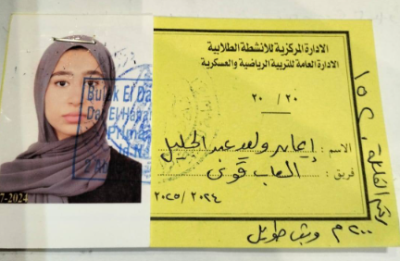 الادارة المركزية للأنشطة الطلابية
الادارة العامة للتربية الرياضية والعسكرية
٢٠ / ٢٠
الاسم : إيمان وليد عبد الجليل
فريق : العاب قوى
٢٠٢٥/٢٠٢٤
٢٠٠ م وثب طويل
Bulak El Da
Prim
7-2024